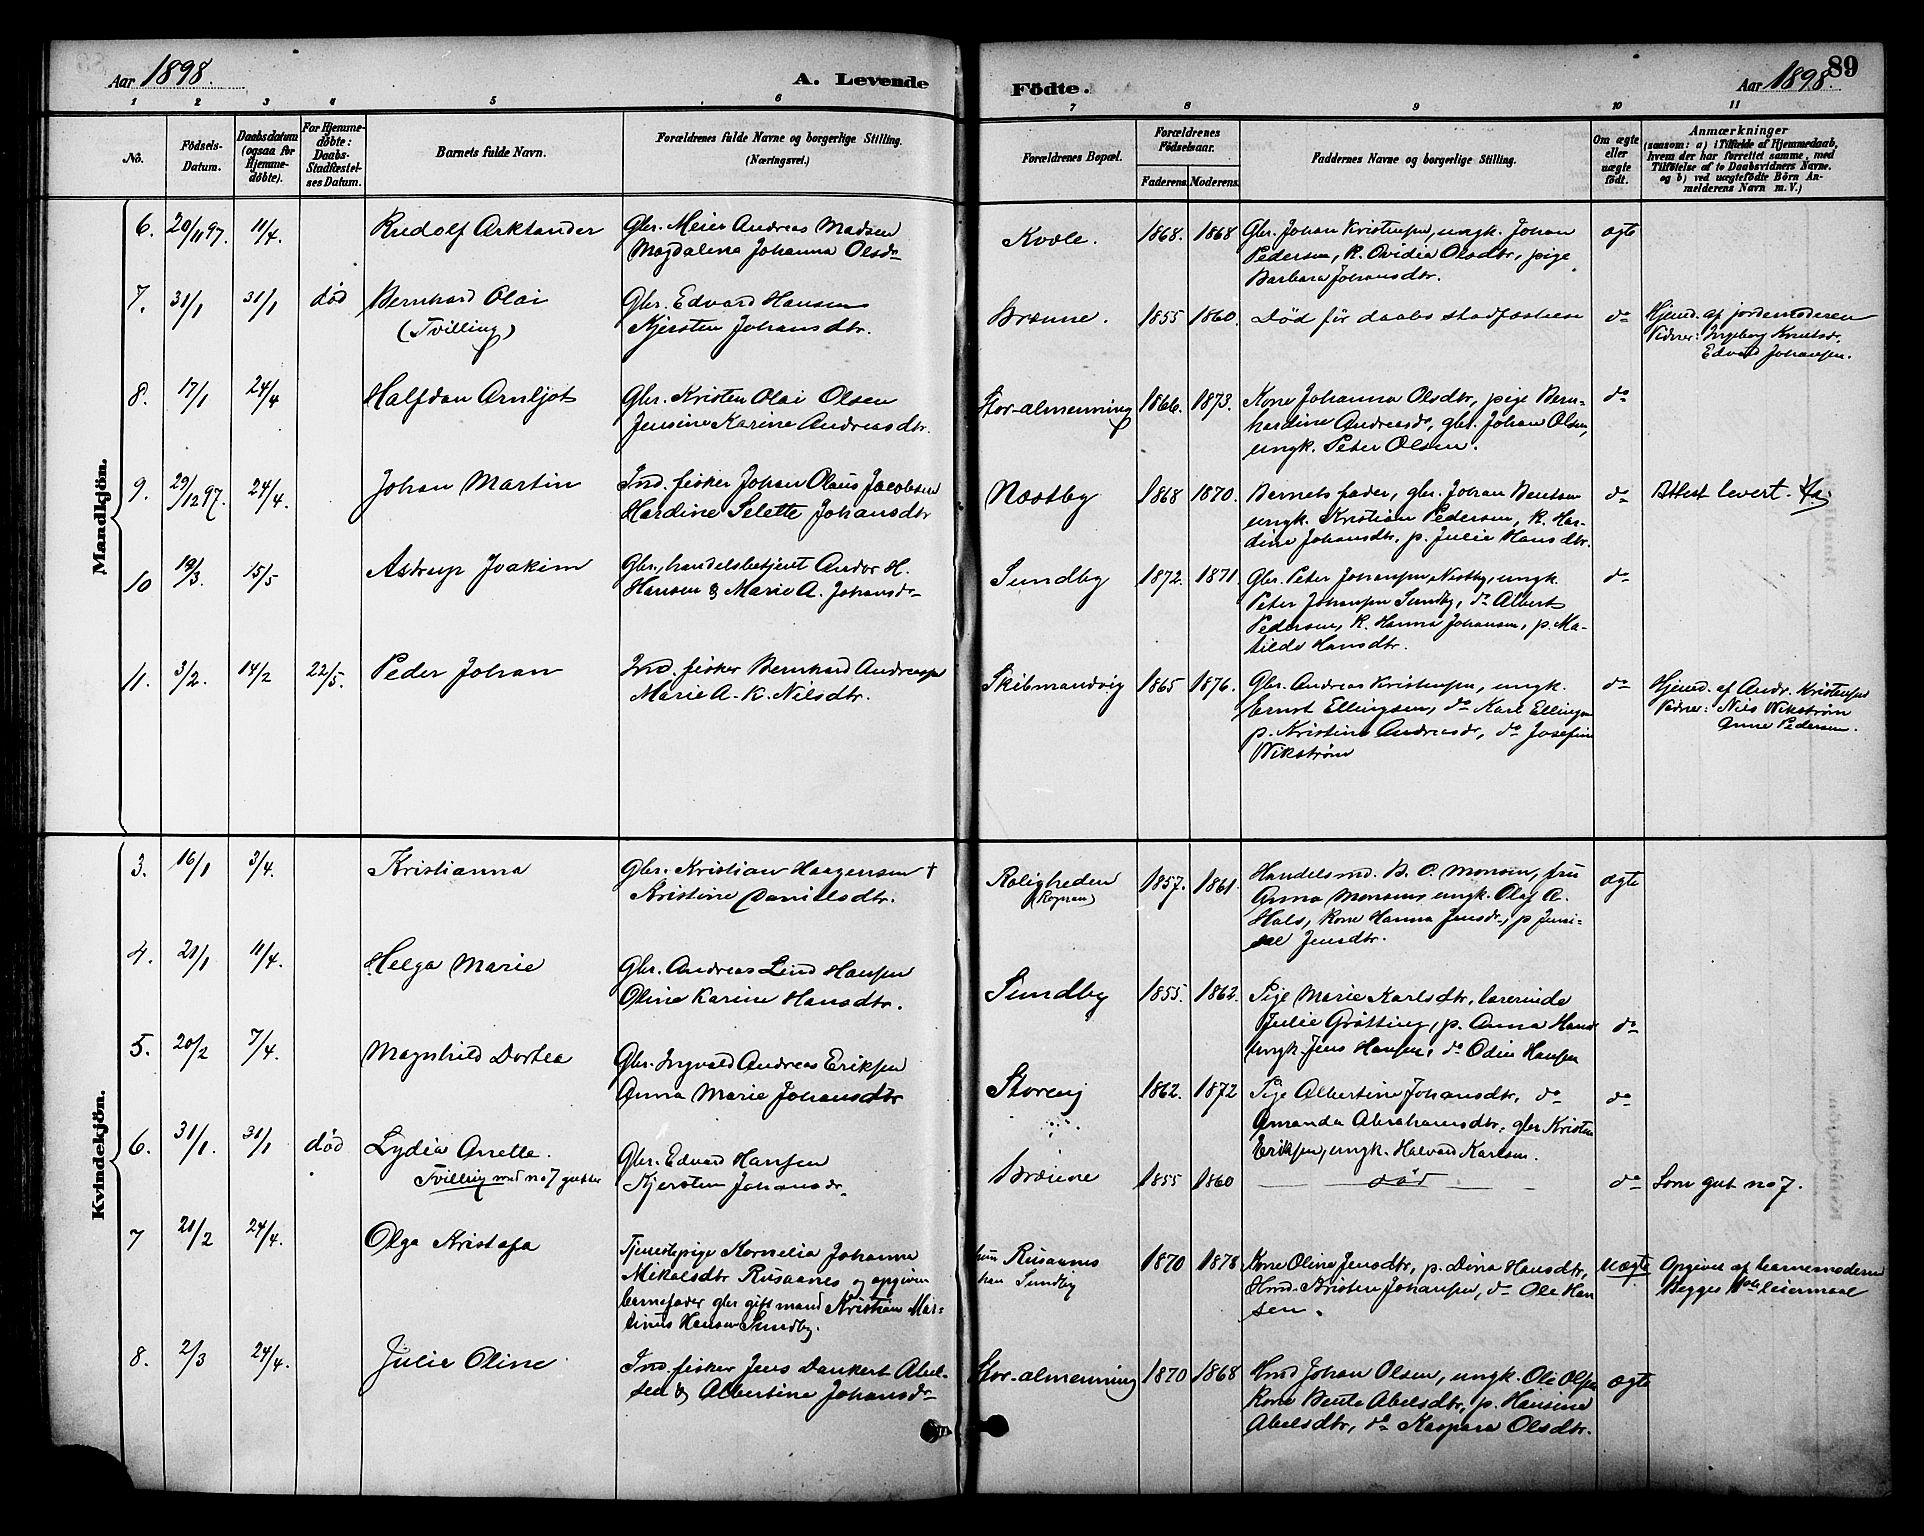 Aar 1898.
A. Levende
Födte.
Aar 1898.
89
1 2 3 4 5 6 7 8 9 10 11
No.
Födsels-
Datum.
Daabsdatum
(ogsaa for
Hjemme-
döbte).
For Hjemme-
döbte:
Daabs-
Stadfæstel-
ses Datum.
Barnets fulde Navn.
Forældrenes fulde Navne og borgerlige Stilling.
(Næringsvei.)
Forældrenes Bopæl.
Forældrenes
Födselsaar.
Faderens.
Moderens.
Faddernes Navne og borgerlige Stilling.
Om ægte
eller
uægte
födt.
Anmærkninger
(saasom: a) i Tilfælde af Hjemmedaab,
hvem der har forrettet samme, med
Tilföielse af to Daabsvidners Navne.
og b) ved uægtefödte Börn An-
melderens Navn m. V.)
Mandkjön.
6. 20/11 97. 11/4. Rudolf Arktander
Gbr. Meier Andreas Madsen
Magdalena Johanna Olsdr
Kvæle. 1868. 1868
Gbr. Johan Kristensen, ungk. Johan
Pedersen, k. Ovidia Olsdtr, pige
Barbara Johansdtr.
ægte
7. 31/1 31/1 død Bernhard Olai
(Tvilling)
Gbr. Edvard Hansen
Kjersten Johansdtr.
Brænne. 1855 1860.
Død før daabs stadfæstelse
do
Hjemd. af jordemoderen
Vidner: Ingeborg Knutsd.
Edvard Johansen.
8. 17/1 24/4 Halfdan Arnljot
Gbr. Kristen Olai Olsen
Jensine Karine Andreasdtr.
Stor-almenning 1866. 1873.
Kone Johanna Olsdtr, pige Bern-
hardine Andreasdr, gbr. Johan Olsen,
ungk. Peter Olsen.
do
9. 29/12 97. 24/4. Johan Martin
Ind. fisker Johan Olaus Jacobsen
Hardine Selette Johansdtr
Næstby 1868 1870.
Barnets fader, gbr. Johan Bentsen
ungk. Kristian Pedersen, k. Har-
dine Johansdtr, p. Julie Hansdtr.
do
Attest levert.
10 19/3. 15/5 Astrup Joakim
Gbr., handelsbetjent Andor H.
Hansen & Marie A. Johansdr
Sundby 1872. 1871.
Gbr. Peter Johansen Nestby, ungk.
Peter Johansen Sundby, do Albert
Pedersen, k. Hanna Johansen, p. Ma-
tilde Hansdtr.
do
11. 3/2. 14/2 22/5. Peder Johan
Ind. fisker Bernhard Andreasen
Marie A. K. Nilsdtr.
Skibmandvig 1865 1876.
Gbr. Andreas Kristensen, ungk.
Ernst Ellingsen, do Karl Ellingsen
p. Kristine Andreasdr, do Josefine
Wikstrøm
do
Hjemd. af Andr. Kristensen
Vidner: Nils Wikstrøm
Anne Pedersen.
Kvindekjön.
3. 16/1 3/4. Kristianna
Gbr. Kristian Haagensen †
Kristine Danielsdtr.
Roligheden
(Rognan)
1857. 1861.
Handelsmd. B. O. Monsen, fru
Anna Monsens ungk. Olaf A.
Hals, kone Hanna Jensdr, p Jensi-
ne Jensdtr.
ægte
4. 21/1 11/4. Helga Marie
Gbr. Andreas Lind Hansen
Oline Karine Hansdtr.
Sundby 1855. 1862.
Pige Marie Karlsdtr. lærerinde
Julie Grøtting, p. Anna Hansd
ungk. Jens Hansen, do Odin Hansen
do
5. 20/2 7/4. Magnhild Dortea
Gbr. Ingvald Andreas Eriksen
Anna Marie Johansdtr
Storeng 1862. 1872
Pige Albertine Johansdtr. do
Amanda Abrahamsdtr, gbr Kristen
Eriksen, ungk. Halvard Karlsen.
do
6. 31/1. 31/1 død Lydia Anette.
Tvilling med no 7 gutter
Gbr. Edvard Hansen
Kjersten Johansdr
Brænne 1855 1860
død
do
Som gut no 7.
7 21/2 24/4. Olga Kristofa
Tjenestepige Kornelia Johanna
Mikalsdtr Rusaanes og opgiven
barnefader gbr gift mand Kristian Mar-
tinus Hansen Sundby.
hun Rusaanes
han Sundby
1870 1878
Kone Oline Jensdtr, p. Dina Hansdtr,
Hmd. Kristen Johansen, do Ole Han
sen.
uægte
Opgivet af barnemoderen
Begges leiermaal
8. 2/3 24/4. Julie Oline
Ind. fisker Jens Dankert Abel-
sen & Albertine Johansdr
Stor-almenning 1870 1868
Hmd Johan Olsen, ungk. Ole Olsen
kone Bente Abelsdtr, p. Hansine
Abelsdtr, do Kaspara Olsdtr.
ægte